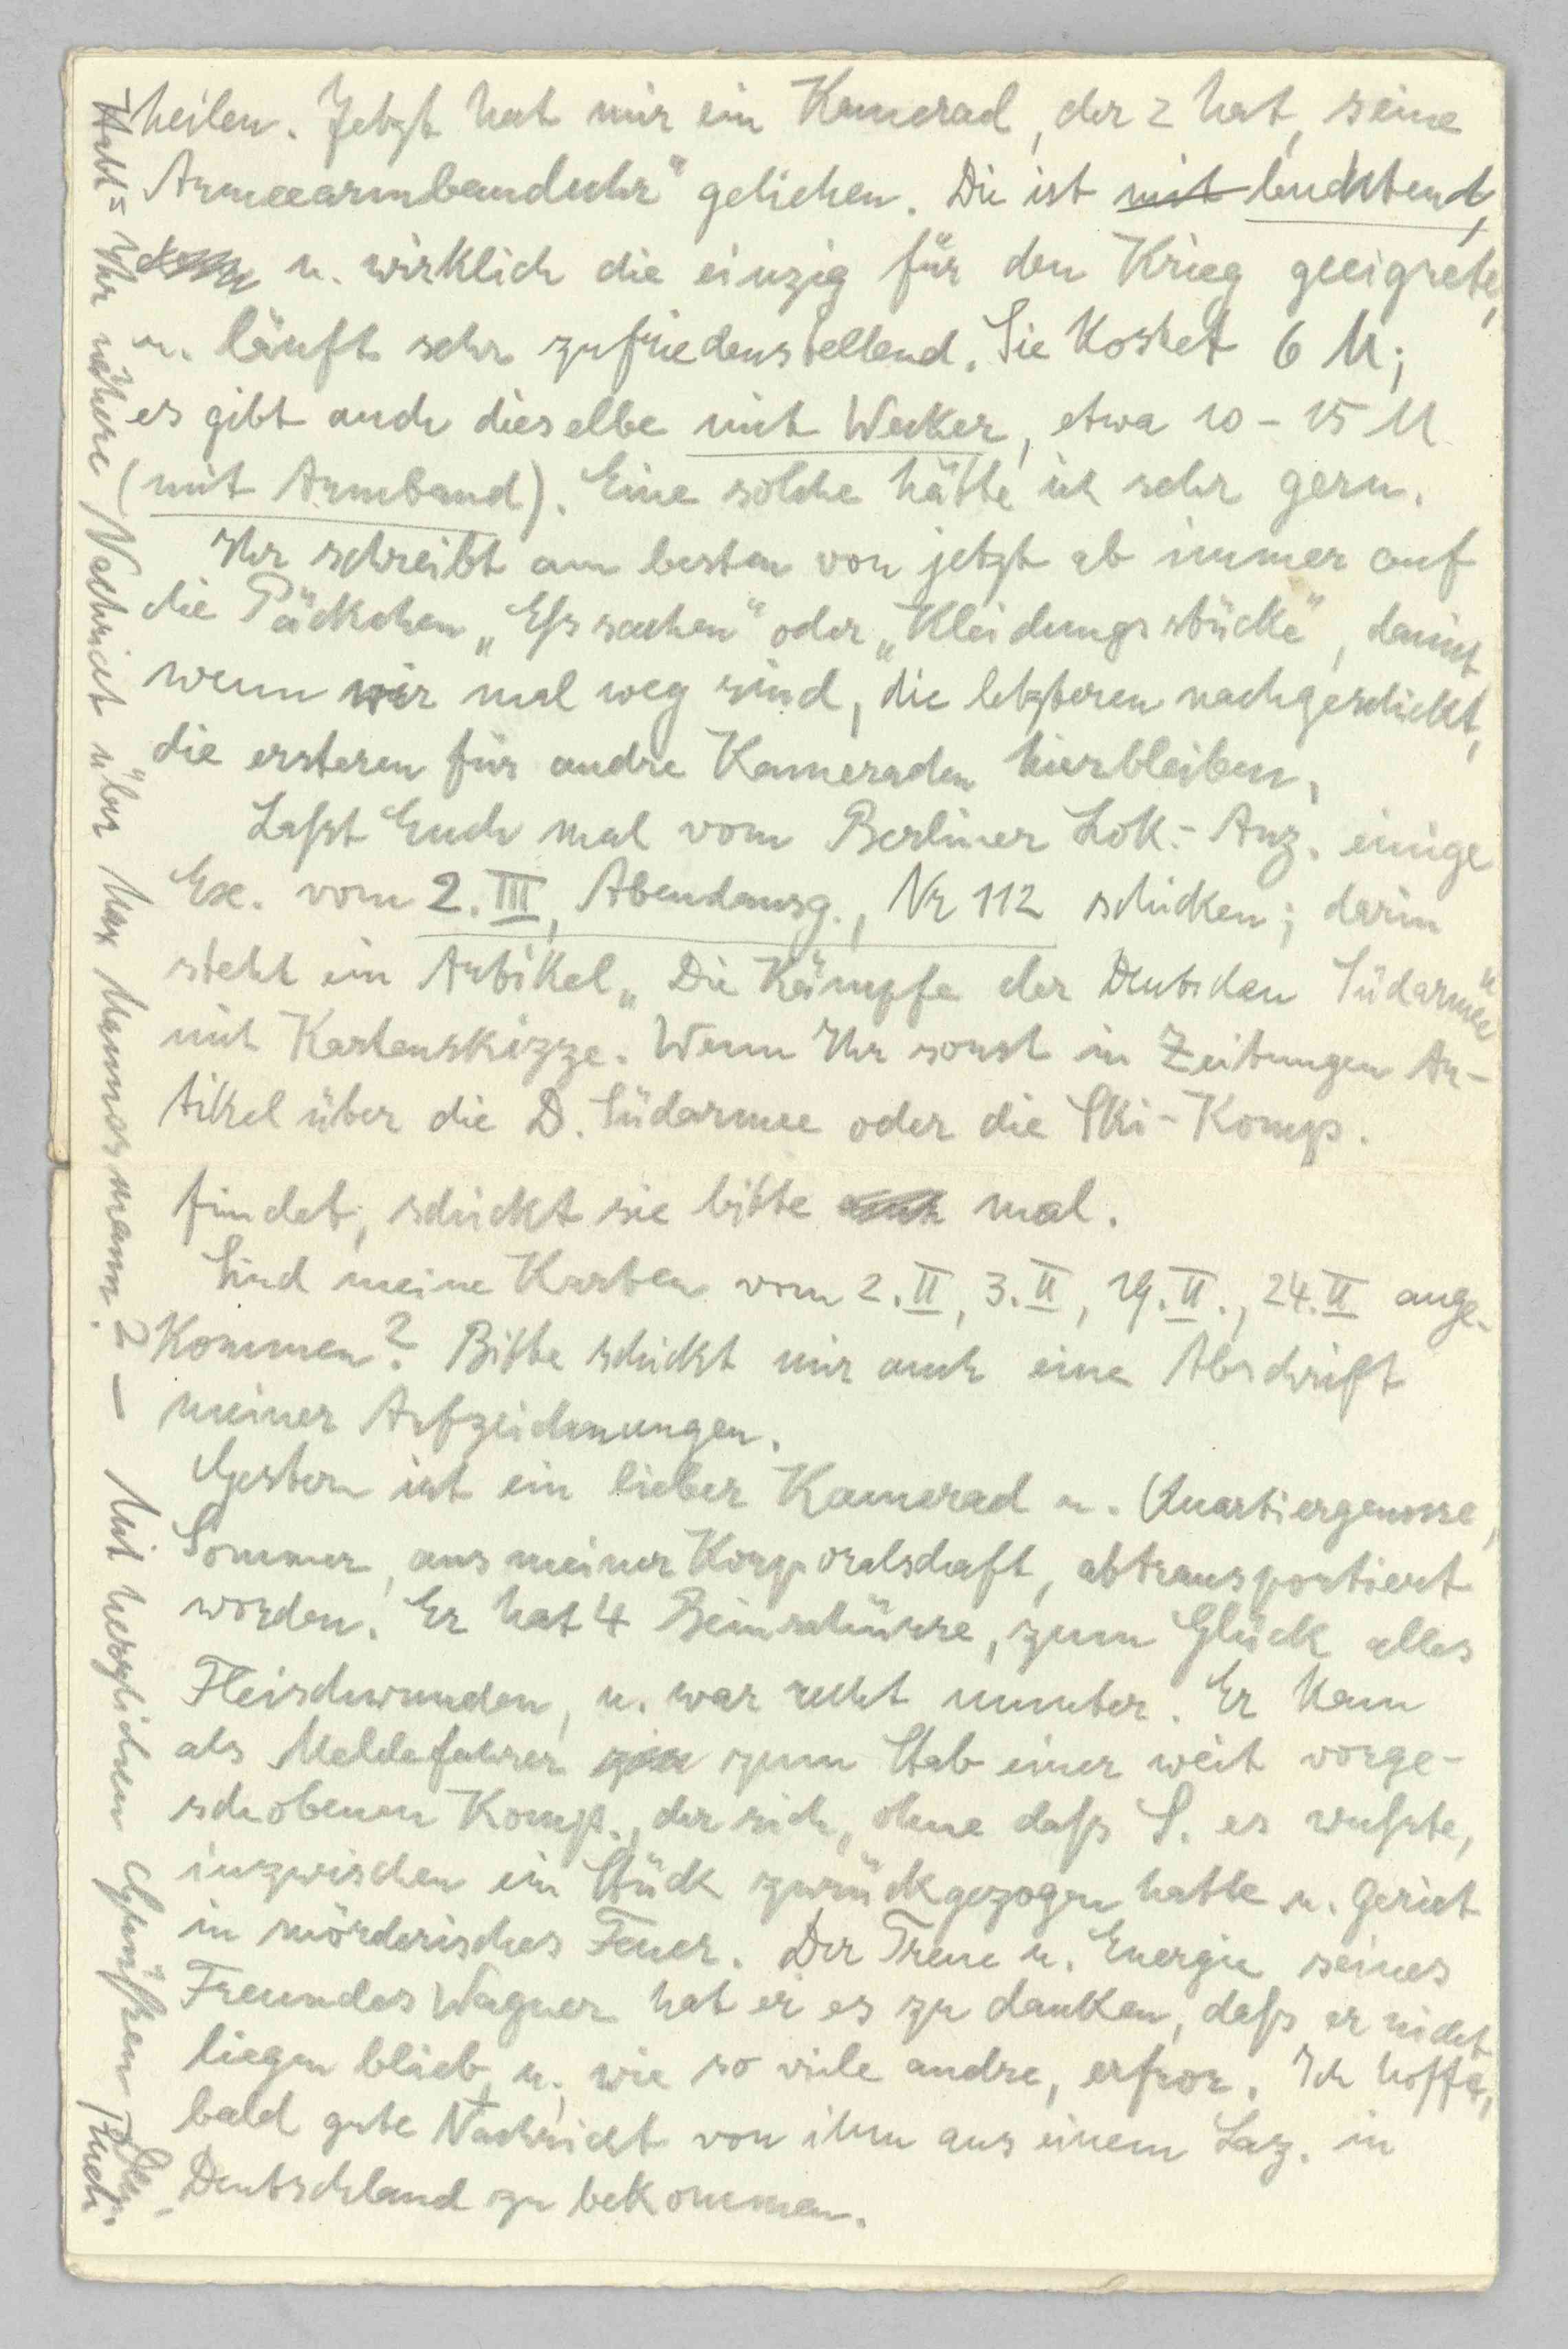 heilen. Jetzt hat mir ein Kamerad, der 2 hat, seine
Armeearmbanduhr" geliehen. Die ist mit leuchtend,
u. wirklich die einzig für den Krieg geeignete,
u. läuft sehr zufriedenstellend. Sie kostet 6 M;
es gibt auch dieselbe mit Wecker, etwa 10 - 15 M
(mit Armband). Eine solche hätte ich sehr gern.
Ihr schreibt am besten von jetzt ab immer auf
die Päckchen „Esssachen" oder „Kleidungsstücke", damit
wenn wir mal weg sind, die letzteren nachgeschickt,
die ersteren für andre Kameraden hierbleiben.
Lasst Euch mal vom Berliner Lok.-Anz. einige
Ex. vom 2. III, Abendausg., Nr 112 schicken; darin
steht ein Artikel „Die Kämpfe der Deutschen Südarmee"
mit Kartenskizze. Wenn Ihr sonst in Zeitungen Ar-
tikel über die D. Südarmee oder die Ski-Komp.
findet, schickt sie bitte mal.
Sind meine Karten vom 2. II, 3. II, 19. II., 24. II ange-
kommen? Bitte schickt mir auch eine Abschrift
meiner Aufzeichnungen.
Gestern ist ein lieber Kamerad u. Quartiergenosse,
Sommer, aus meiner Korporalschaft, abtransportiert
worden. Er hat 4 Beinschüsse, zum Glück alles
Fleischwunden, u. war recht munter. Er kam
als Meldefahrer zum Stab einer weit vorge-
schobenen Komp., der sich, ohne dass S. es wusste,
inzwischen ein Stück zurückgezogen hatte u. geriet
in mörderisches Feuer. Der Treue u. Energie seines
Freundes Wagner hat er es zu danken, dass er nicht
liegen blieb u., wie so viele andre, erfror. Ich hoffe,
bald gute Nachricht von ihm aus einem Laz. in
Deutschland zu bekommen.
Habt Ihr nähere Nachricht über Max Mannesmann? — Mit herzlichen Grüssen